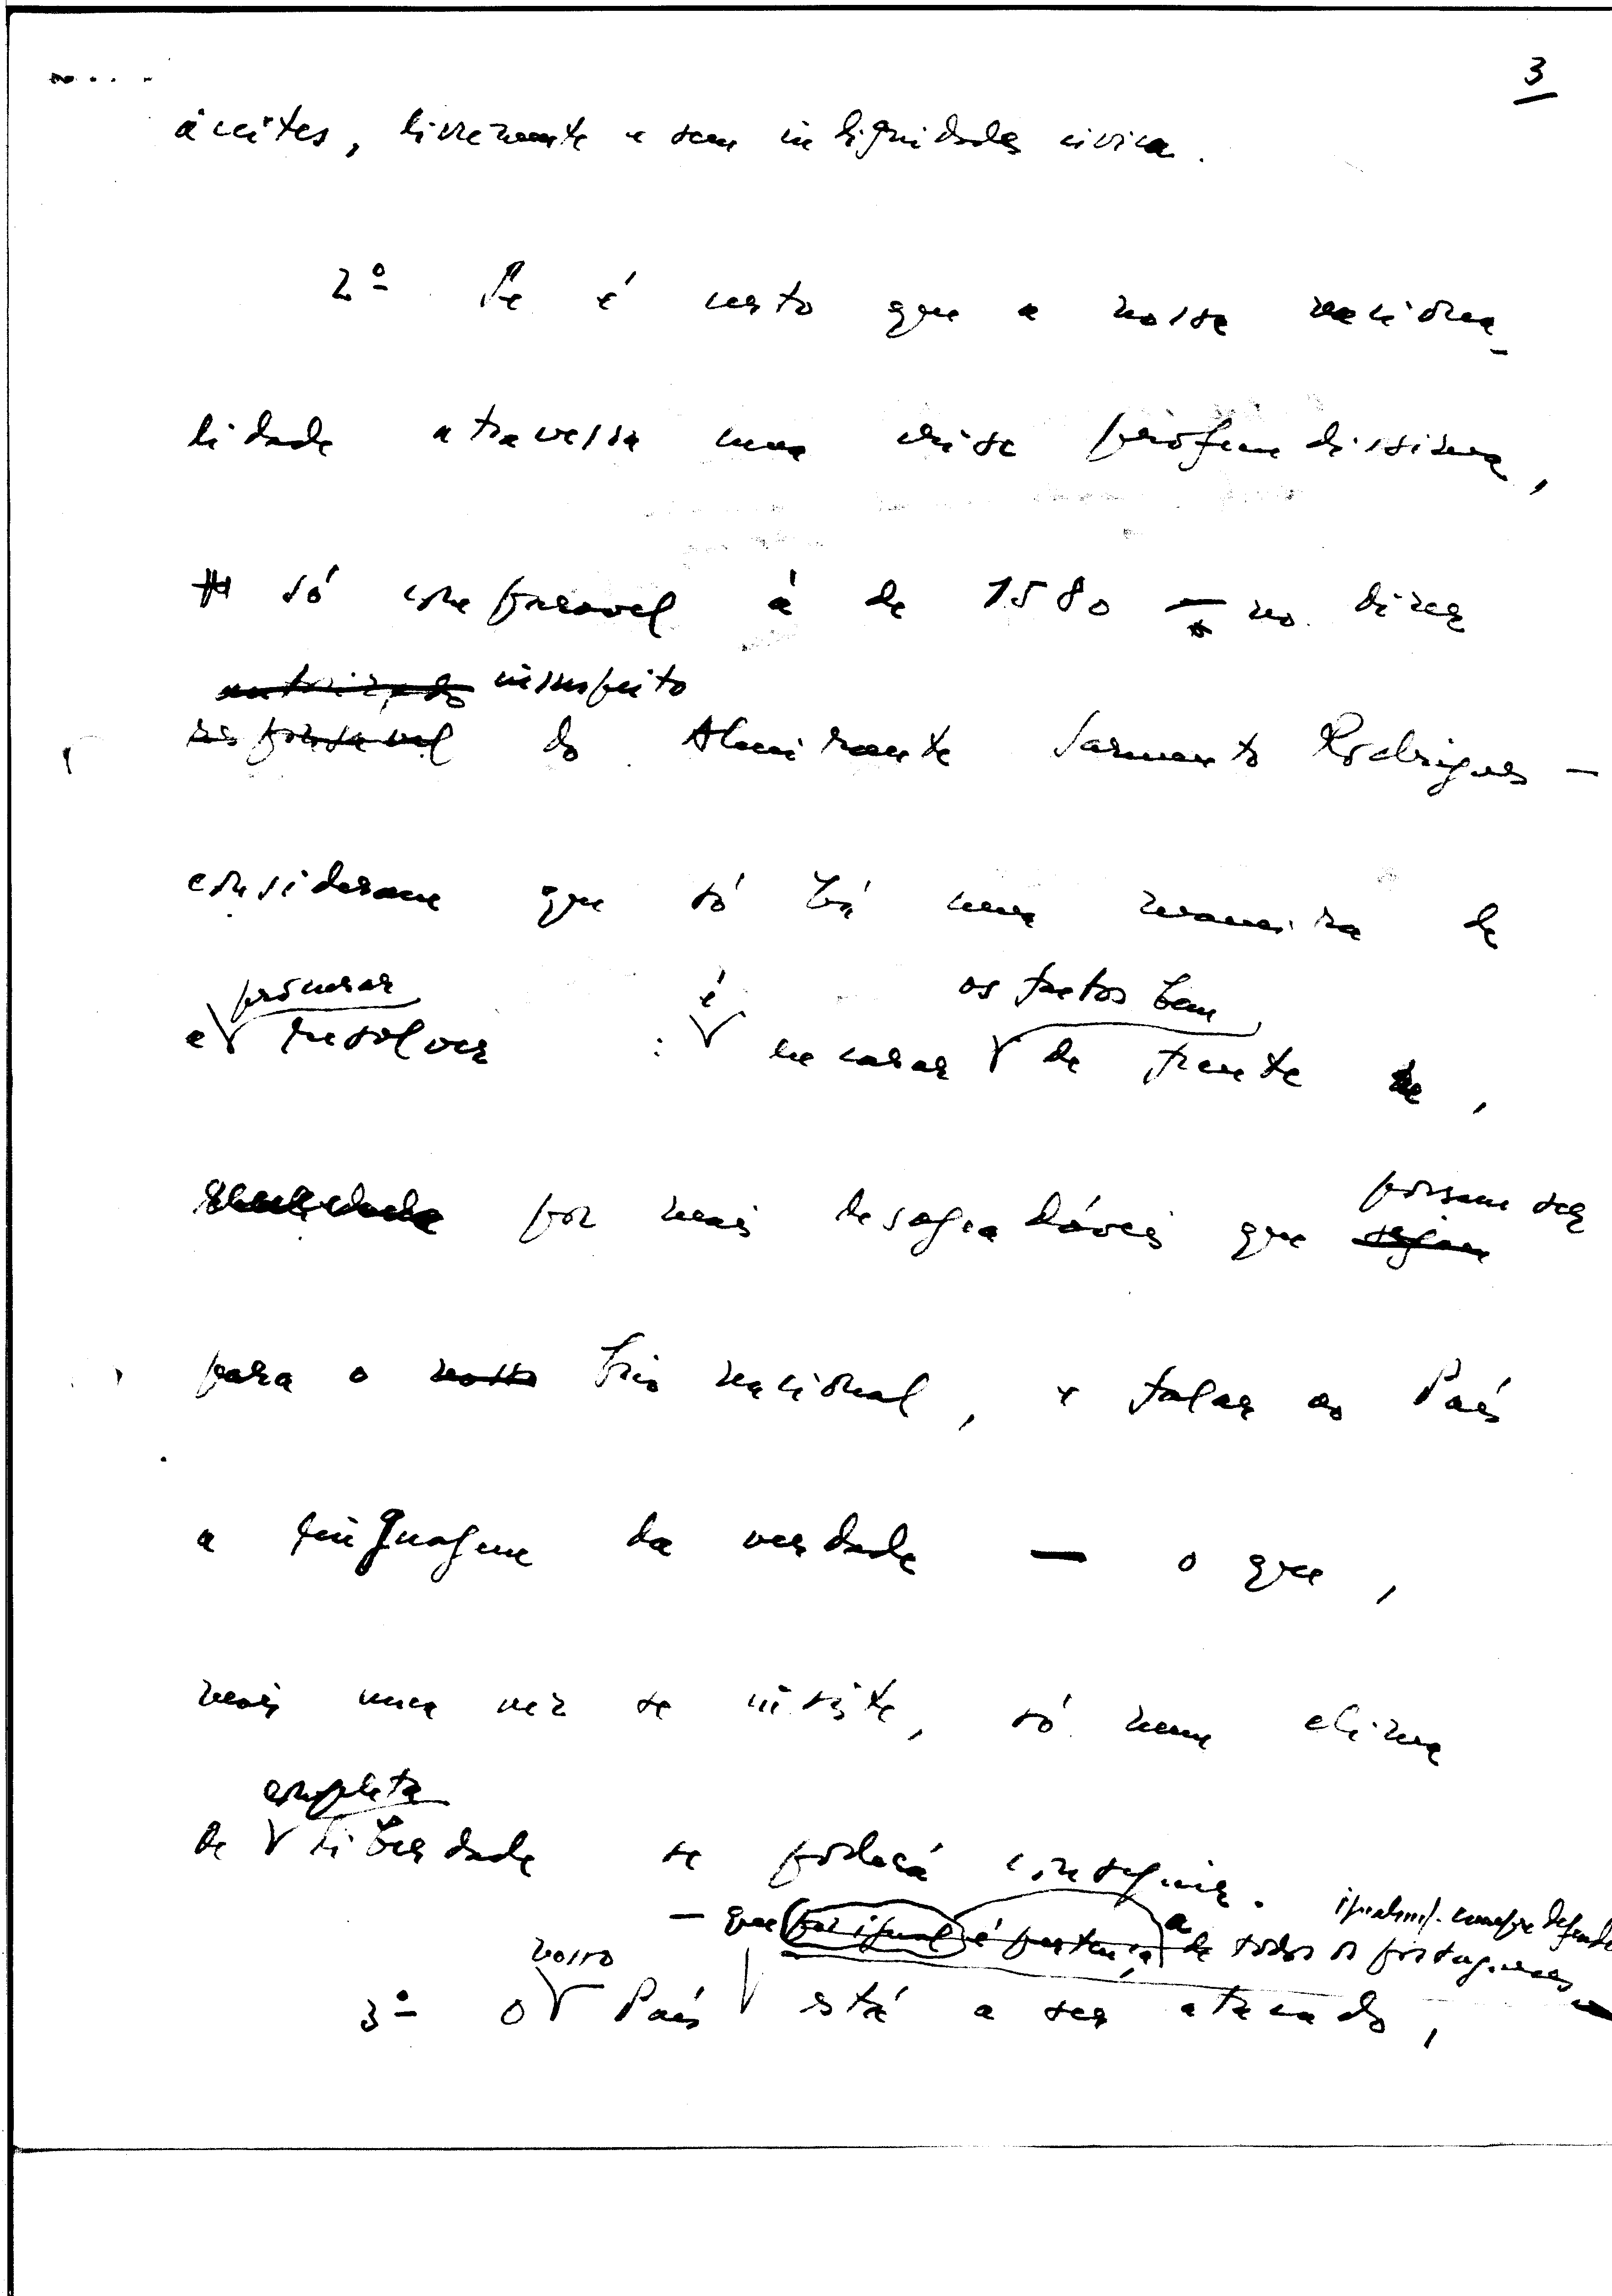 3
aceites, livremente e sem indignidades cívica.
2º Se é certo que a nossa naciona-
lidade atravessa uma crise profundissima,
só comparavel à de 1580 — no dizer
autorizado insuspeito
responsavel do Almirante Sarmento Rodrigues —
consideram que só há uma maneira de
procurar é os factos bem
a resolver : encarar de frente,
por mais desagradáveis que sejam possam ser
para o nosso brio nacional, e falar ao País
a linguagem da verdade — o que,
mais uma vez se insiste, só num clima
completa
de liberdade se poderá conseguir.
igualm/. cumpre defender
— que por igual é pertença de a todos os portugueses —
nosso
3º O País está a ser atacado,